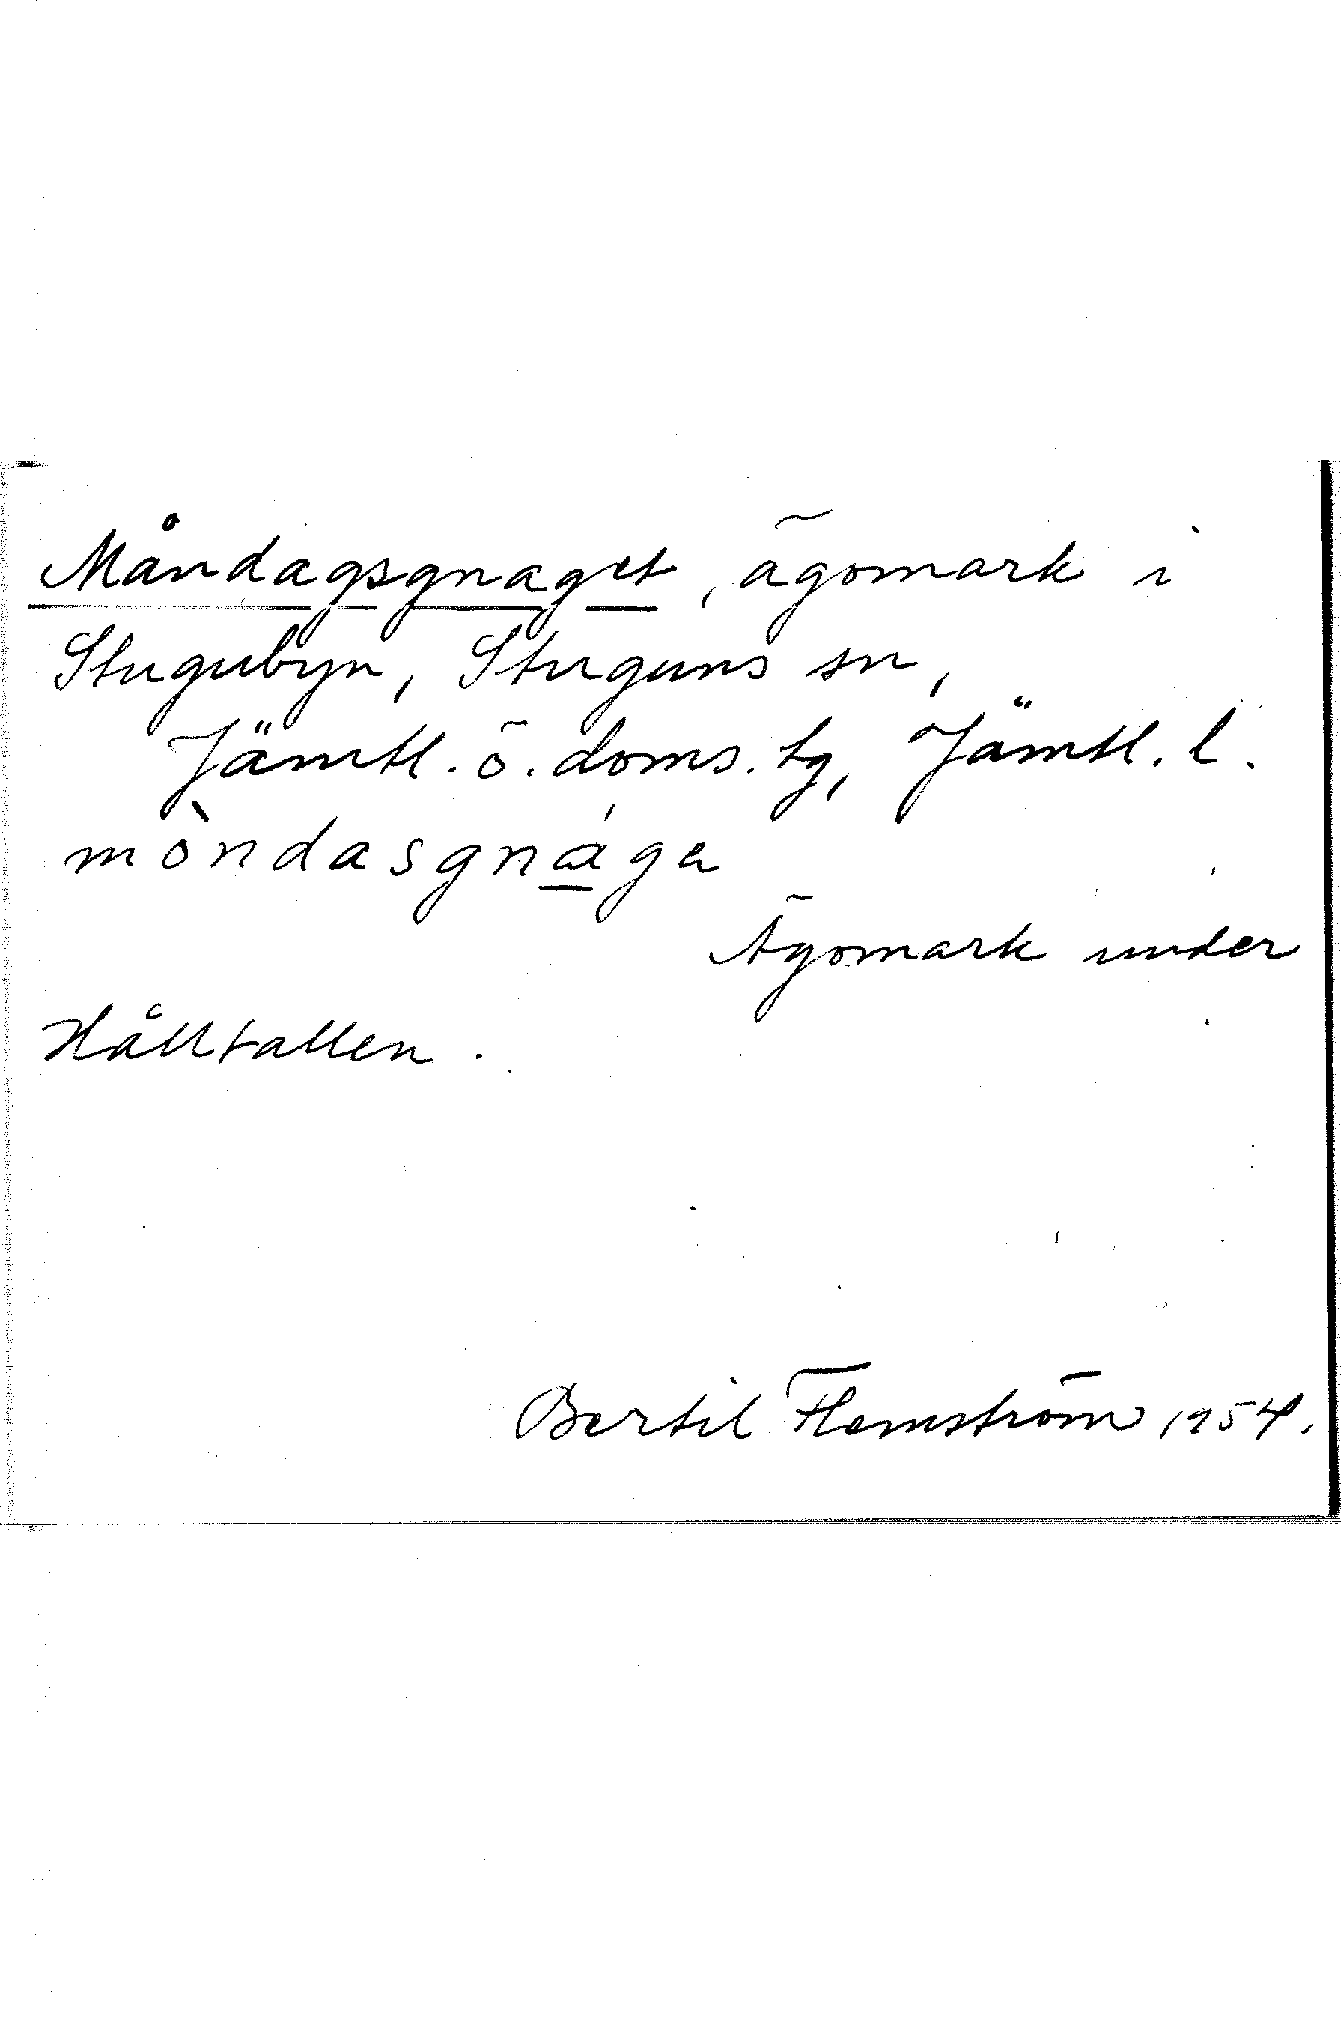 Måndagsgnaget, ägomark i
Stugubyn, Stuguns sn,
Jämtl. ö. doms. tg, Jämtl. l.
mòndasgnága
Ägomark under
Hålltallen.
Bertil Flemström 1954.